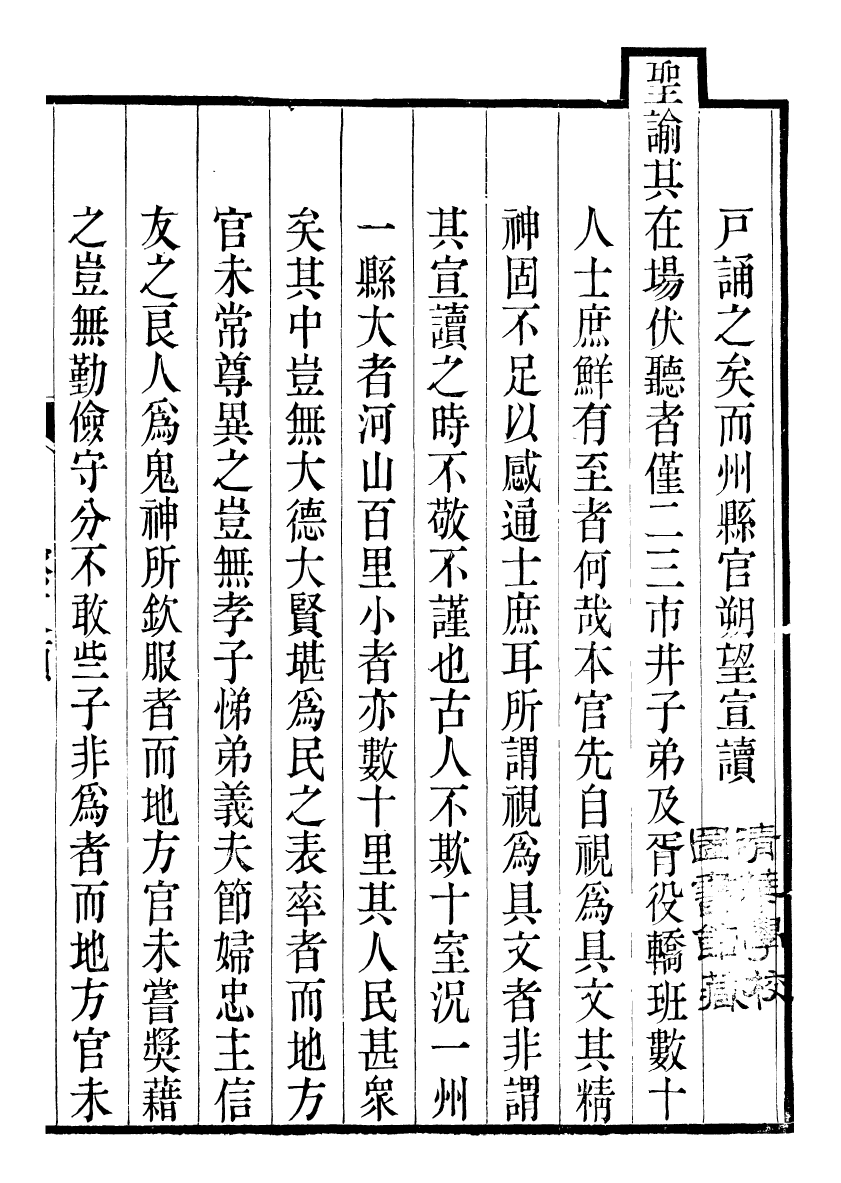 戸誦之矣而州縣官朔望宣讀
聖諭其在場伏聽者僅二三市井子弟及胥役轎班數十
人士庶鮮有至者何哉本官先自視爲具文其精
神固不足以感通士庶耳所謂視爲具文者非謂
其宣讀之時不敬不謹也古人不欺十室況一州
一縣大者河山百里小者亦數十里其人民甚衆
矣其中豈無大德大賢堪爲民之表率者而地方
官未常尊異之豈無孝子悌弟義夫節婦忠主信
友之良人爲鬼神所欽服者而地方官未嘗獎藉
之豈無勤儉守分不敢些子非爲者而地方官未
清華學校
圖書館藏